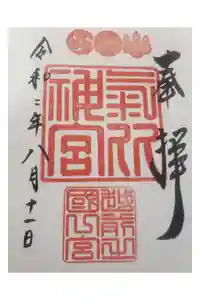 奉拝
氣比
神宮
越前
國一宮
令和二年八月十一日